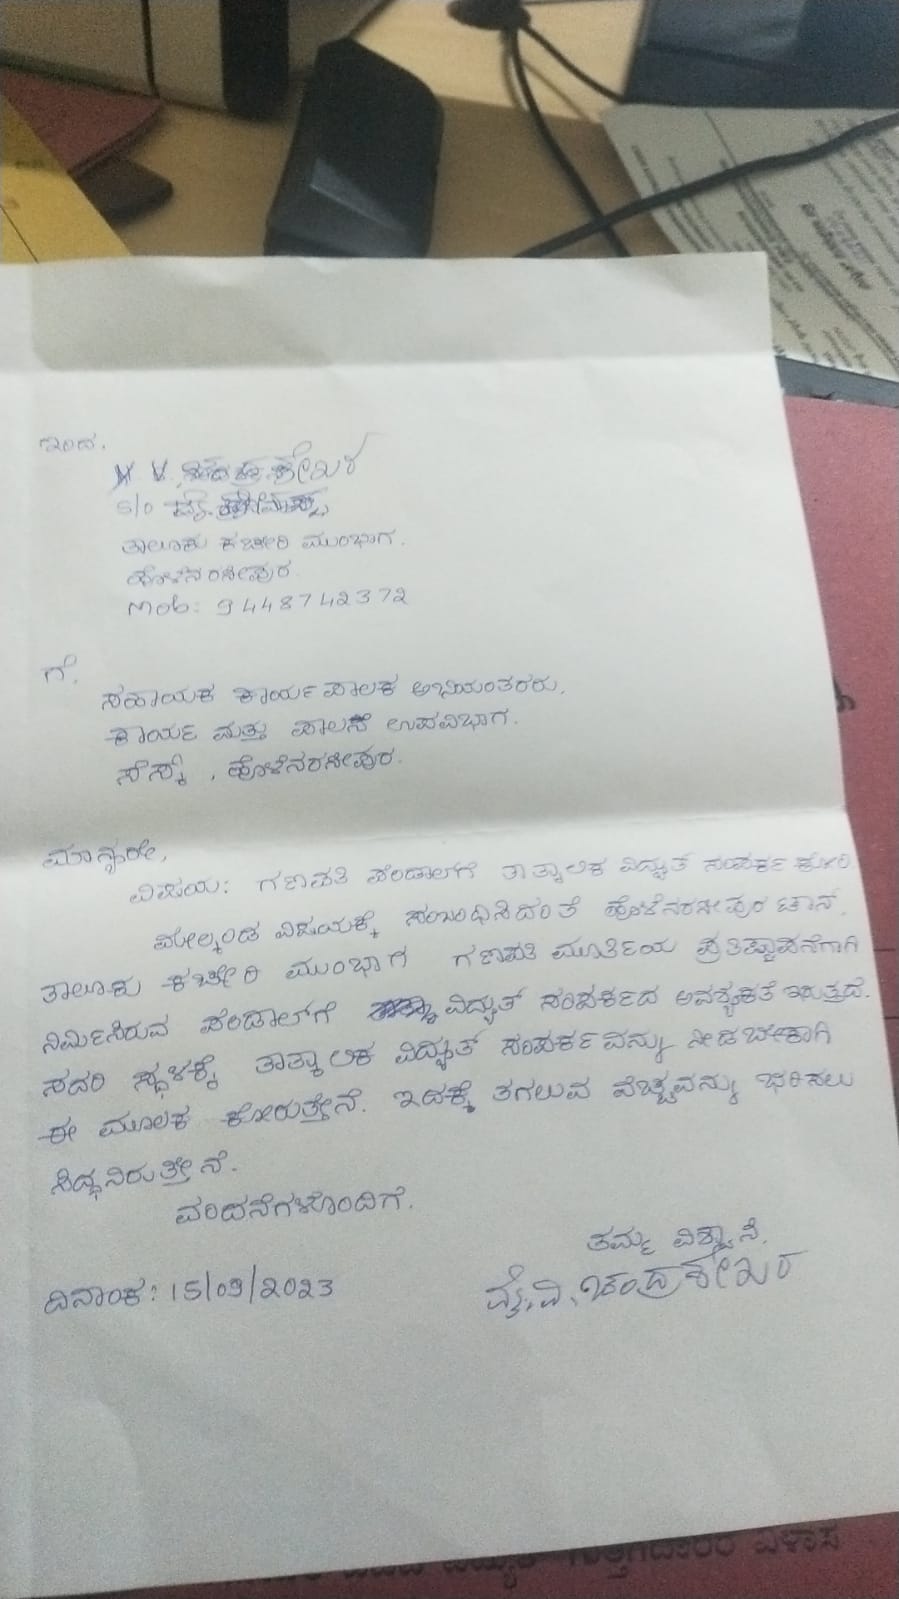 ಇಂದ.
Y. V. ಚಂದ್ರಶೇಖರ
S/o
ತಾಲೂಕು ಕಚೇರಿ ಮುಂಭಾಗ.
ಹೊಳೆನರಸೀಪುರ.
Mob: 9448742372
ಗೆ,
ಸಹಾಯಕ ಕಾರ್ಯಪಾಲಕ ಅಭಿಯಂತರರು,
ಕಾರ್ಯ ಮತ್ತು ಪಾಲನೆ ಉಪವಿಭಾಗ.
ಸೆಸ್ಕ್, ಹೊಳೆನರಸೀಪುರ.
ಮಾನ್ಯರೇ,
ವಿಷಯ: ಗಣಪತಿ ಪೆಂಡಾಲ್‌ಗೆ ತಾತ್ಕಾಲಿಕ ವಿದ್ಯುತ್ ಸಂಪರ್ಕ ಕುರಿ
ಮೇಲ್ಕಂಡ ವಿಷಯಕ್ಕೆ ಸಂಬಂಧಿಸಿದಂತೆ ಹೊಳೆನರಸೀಪುರ ಟೌನ್.
ತಾಲೂಕು ಕಚೇರಿ ಮುಂಭಾಗ ಗಣಪತಿ ಮೂರ್ತಿಯ ಪ್ರತಿಷ್ಠಾಪನೆಗಾಗಿ
ನಿರ್ಮಿಸಿರುವ ಪೆಂಡಾಲ್‌ಗೆ ವಿದ್ಯುತ್ ಸಂಪರ್ಕದ ಅವಶ್ಯಕತೆ ಇರುತ್ತದೆ.
ಸದರಿ ಸ್ಥಳಕ್ಕೆ ತಾತ್ಕಾಲಿಕ ವಿದ್ಯುತ್ ಸಂಪರ್ಕವನ್ನು ನೀಡಬೇಕಾಗಿ
ಈ ಮೂಲಕ ಕೋರುತ್ತೇನೆ. ಇದಕ್ಕೆ ತಗಲುವ ವೆಚ್ಚವನ್ನು ಭರಿಸಲು
ಸಿದ್ಧನಿರುತ್ತೇನೆ.
ವಂದನೆಗಳೊಂದಿಗೆ.
ತಮ್ಮ ವಿಶ್ವಾಸಿ.
ದಿನಾಂಕ: 15/09/2023
ವೈ.ವಿ.ಚಂದ್ರಶೇಖರ
ವಿಳಾಸ